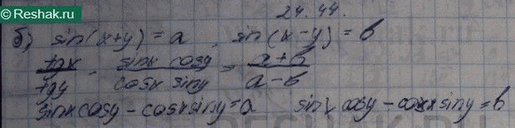 Reshak.ru
24.44.
б) sin(x+y) = a , sin(x-y) = b
tgx/tgy = sinx cosy/cosx siny = a+b/a-b
sinxcosy - cosxsiny = a sinx cosy - cosx siny = b